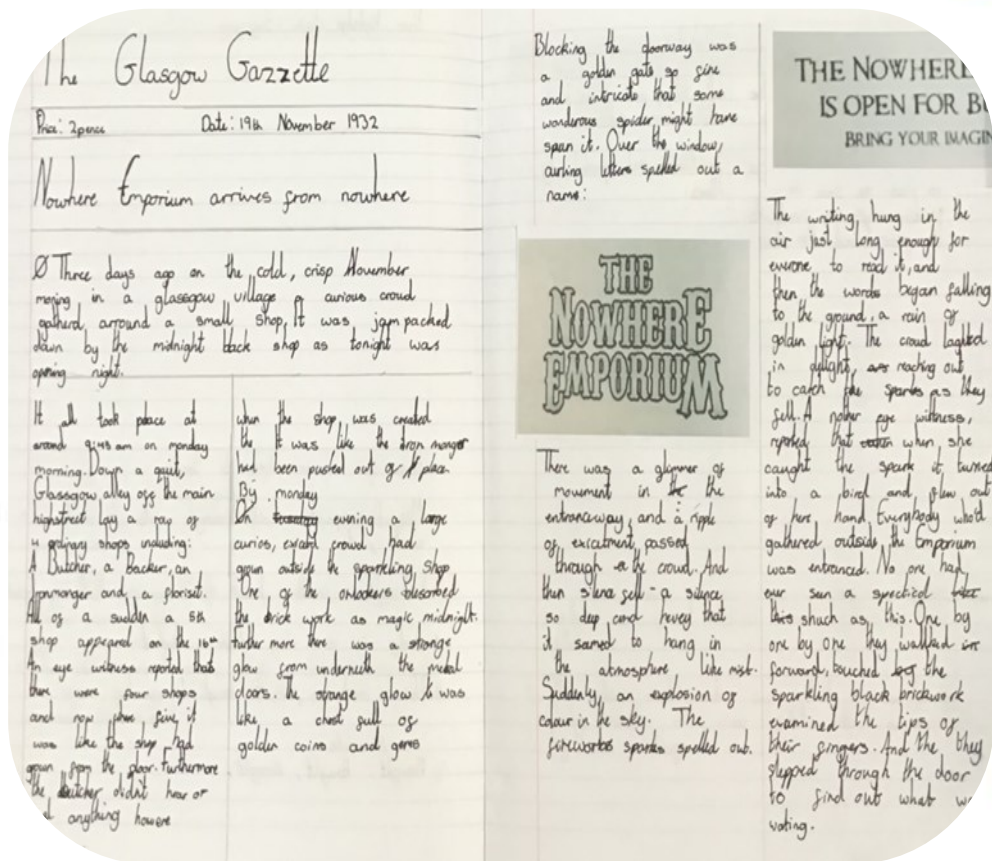 The Glasgow Gazzette
Price: 2pence Date: 19th November 1932
Nowhere Emporium arrives from nowhere
Three days ago on the cold, crisp November
moring in a glassgow village a curious croud
gatherd arround a small shop, It was jam packed
down by the midnight back shop as tonight was
opning night.
It all took peace at
around 9:48 am on monday
morning. Down a quit,
Glassgow alley off the main
highstreet lay a rap of
4 ordinary shops including:
A Butcher, a backer, an
Ironmonger and a florisit.
All of a sudden a 5th
shop appeared on the 16th
An eye witness reported that
there were four shops
and now five, it
was like the shop had
grown from the floor. Furthermore
the Butcher didnt hear or
anything howere
when the shop was created
the It was like the Iron monger
had been pushed out of place.
By monday
On tuesday evening a large
curios, exicard crowd had
groun outside the sparkling shop
One of the onlookers discribed
the brick work as magic midnight.
further more there was a strange
glow from underneath the metal
doors. The strange glow it was
like, a chest full of
golden coins and gems
Blocking the doorway was
a golden gate so fine
and intricate that some
wonderous spider might have
span it. Over the window,
curling letters spelled out a
name:
THE
NOWHERE
EMPORIUM
There was a glimmer of
movement in the the
entranceway, and a riple
of exicatment passed
through the croud. And
then silence fell - a silence
so deep and hevey that
it seamed to hang in
the atmosphere like mist.
Suddenly, an explosion of
colour in the sky. The
fireworks sparks spelled out.
THE NOWHERE
IS OPEN FOR B
BRING YOUR IMAGIN
The writing hung in the
air just long enough for
everone to read it, and
then the words began falling
to the ground, a rain of
golden light. The croud laghted
in dilight, reaching out
to catch the sparks as they
fell. A nother eye witness,
reported that when she
caught the spark it turned
into a bird and flew out
of here hand. Everybody who'd
gathered outside the Emporium
was entranced. No one had
ever seen a spectical
this shuch as this. One by
one by one they walked
forward, touched the
sparkling black brickwork
examined the tips of
their fingers. And the they
stepped through the door
to find out what
wating.